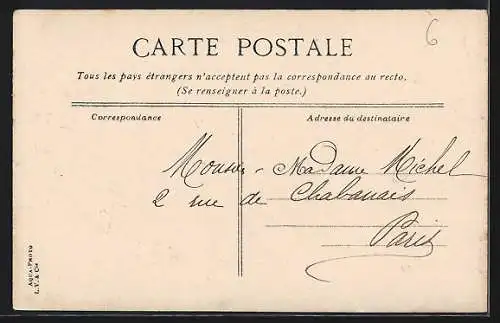 6
CARTE POSTALE
Tous les pays étrangers n'acceptent pas la correspondance au recto.
(Se renseigner à la poste.)
Correspondance
Adresse du destinataire
Madame Michel
2 rue de Chabanais
Paris
AQUA-PHOTO
L.V. & Cie